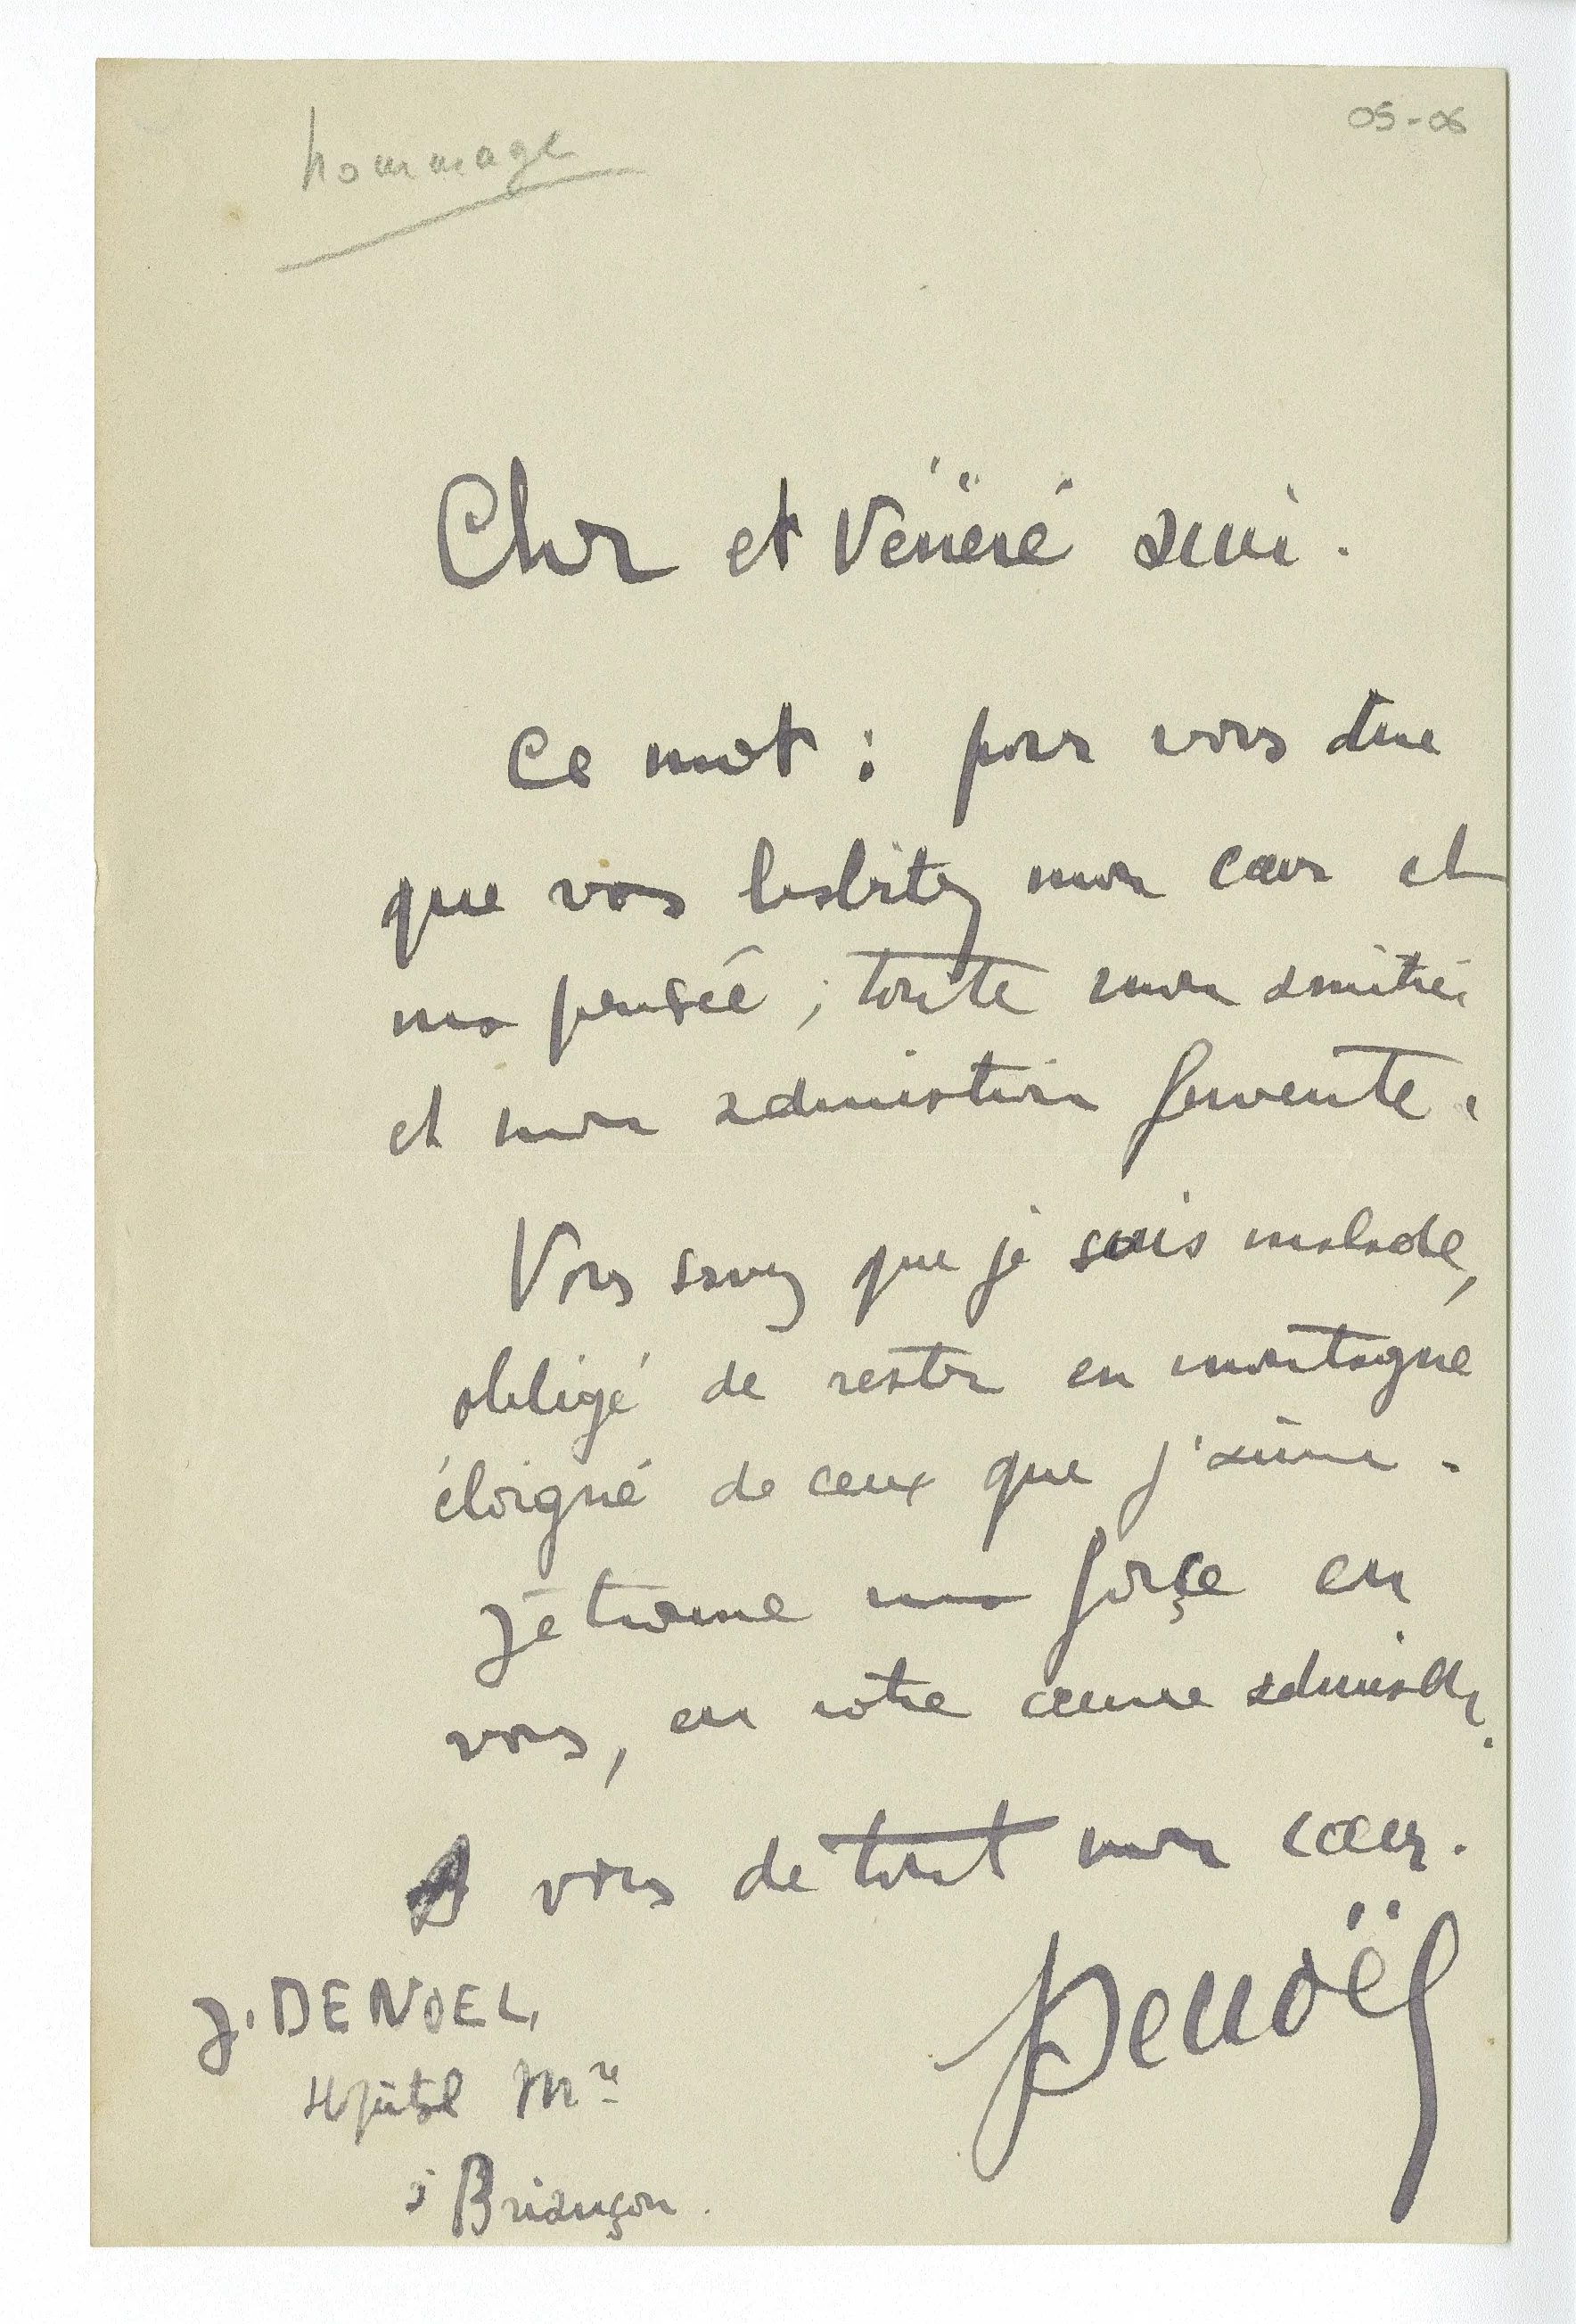 hommage
05-06
Cher et Vénéré ami.
Ce mot : pour vous dire
que vous habitez mon cœur et
ma pensée ; toute mon amitié
et mon admiration fervente.
Vous savez que je suis malade,
obligé de rester en montagne
éloigné de ceux que j'aime.
Je trouve ma force en
vous, en votre œuvre admirable.
A vous de tout mon cœur.
Denoël
J. DENOEL,
Hôpital Mre
à Briançon.